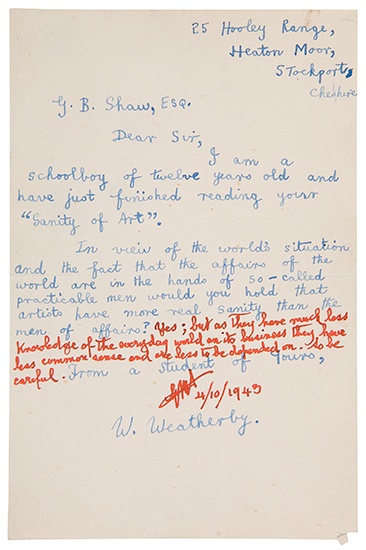 25 Hooley Range,
Heaton Moor,
Stockport,
Cheshire
G. B. Shaw, Esq.
Dear Sir,
I am a
schoolboy of twelve years old and
have just finished reading your
"Sanity of Art".
In view of the world's situation
and the fact that the affairs of the
world are in the hands of so-called
practicable men would you hold that
artists have more real sanity than the
men of affairs? Yes; but as they have much less
knowledge of the everyday world on its business they have
less common sense and are less to be depended on. So be
careful.
From a student of Yours,
GBS 4/10/1943
W. Weatherby.